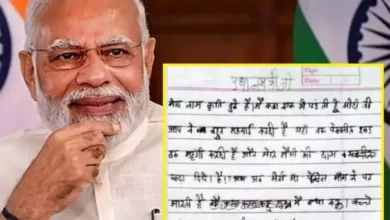 प्रधानमंत्री जी
मेरा नाम कृति दुबे है। मैं कक्षा एक में पढती हूँ मोदी जी
आप ने बहुत महंगाई करदी है यहाँ तक पेन्सील रबड़
तक महंगी करदी है और मेरी मैगी की दाम भी
बढ़ा दिया है। अब मेरी मां पेंसिल मांगने पर
मारती है मैं क्या करू बच्चे